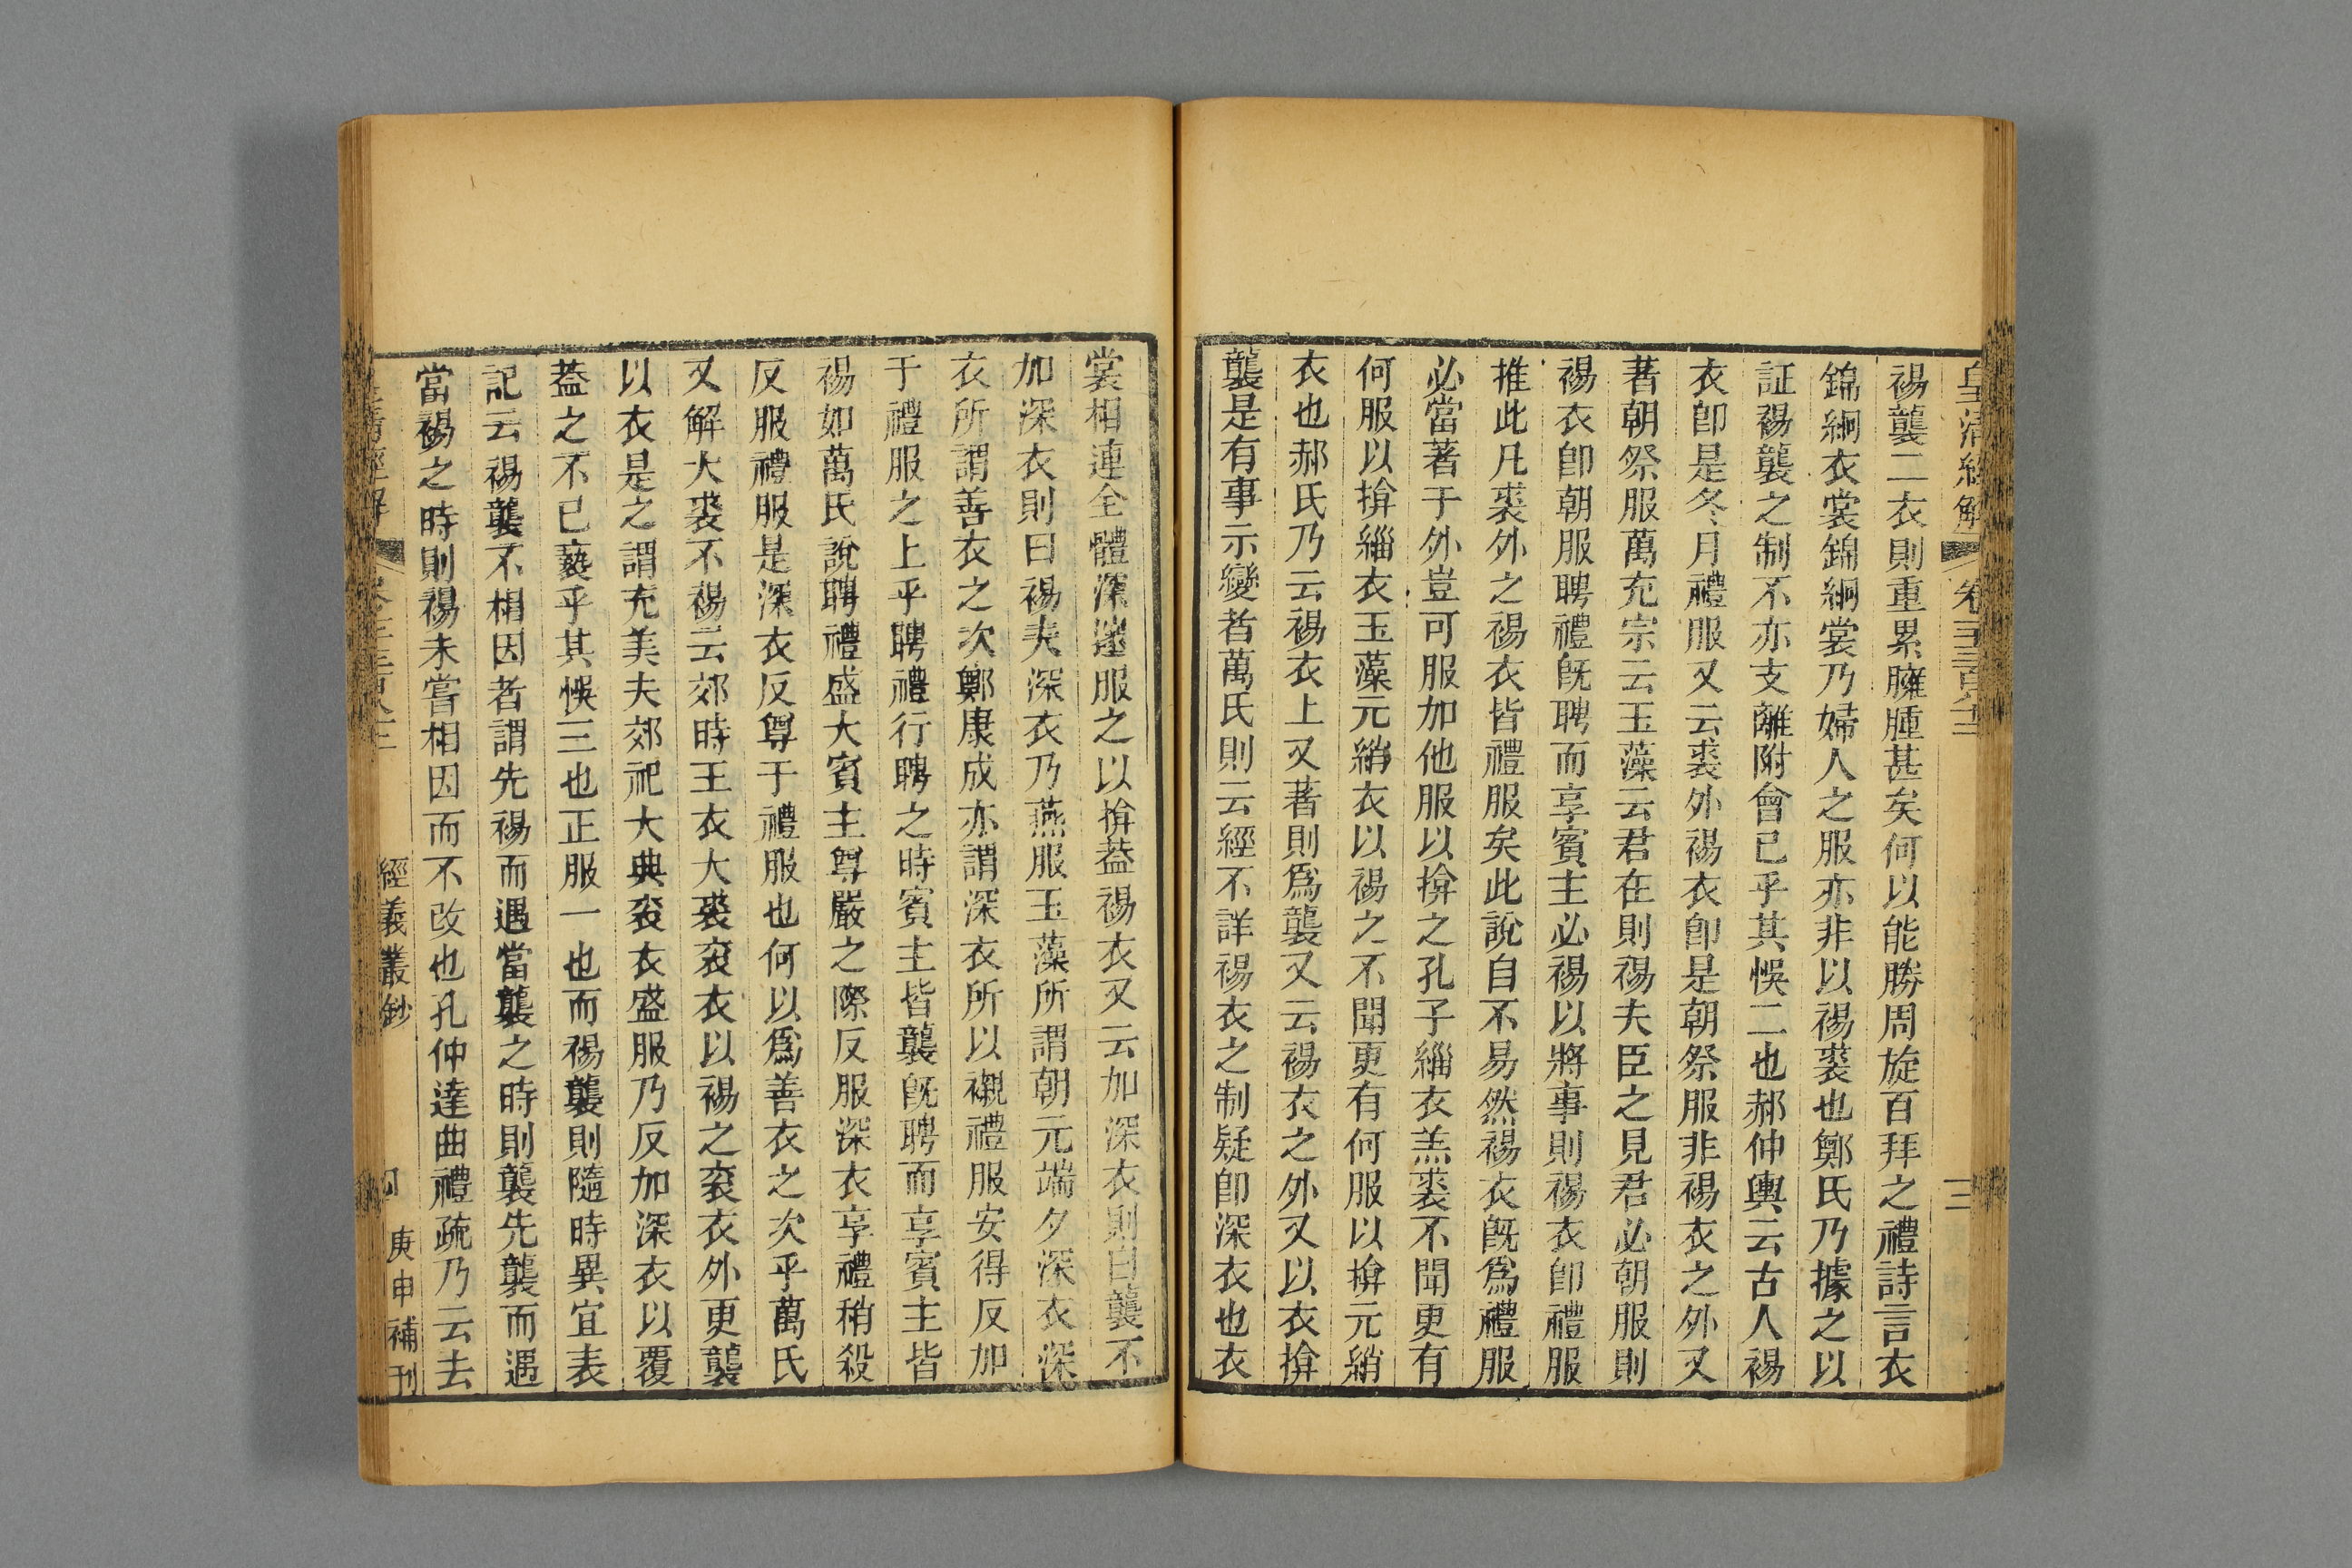 皇清經解
卷
三
裼襲二衣則重累臃腫甚矣何以能勝周旋百拜之禮詩言衣
錦絅衣裳錦絅裳乃婦人之服亦非以裼裘也鄭氏乃據之以
証裼襲之制不亦支離附會已乎其悞二也郝仲輿云古人裼
衣卽是冬月禮服又云裘外裼衣卽是朝祭服非裼衣之外又
著朝祭服萬充宗云玉藻云君在則裼夫臣之見君必朝服則
裼衣卽朝服聘禮旣聘而享賓主必裼以將事則裼衣卽禮服
推此凡裘外之裼衣皆禮服矣此說自不易然裼衣旣爲禮服
必當著于外豈可服加他服以揜之孔子緇衣羔裘不聞更有
何服以揜緇衣玉藻元綃衣以裼之不聞更有何服以揜元綃
衣也郝氏乃云裼衣上又著則爲襲又云裼衣之外又以衣揜
襲是有事示變者萬氏則云經不詳裼衣之制疑卽深衣也衣
裳相連全體深邃服之以揜葢裼衣又云加深衣則曰襲不
加深衣則曰裼夫深衣乃燕服玉藻所謂朝元端夕深衣深
衣所謂善衣之次鄭康成亦謂深衣所以襯禮服安得反加
于禮服之上乎聘禮行聘之時賓主皆襲旣聘而享賓主皆
裼如萬氏說聘禮盛大賓主尊嚴之際反服深衣享禮稍殺
反服禮服是深衣反尊于禮服也何以爲善衣之次乎萬氏
又解大裘不裼云郊時王衣大裘袞衣以裼之袞衣外更襲
以衣是之謂充美夫郊祀大典袞衣盛服乃反加深衣以覆
葢之不已褻乎其悞三也正服一也而裼襲則隨時異宜表
記云裼襲不相因者謂先裼而遇當襲之時則襲先襲而遇
當裼之時則裼未嘗相因而不改也孔仲達曲禮疏乃云去
經義叢鈔
庚申補刊